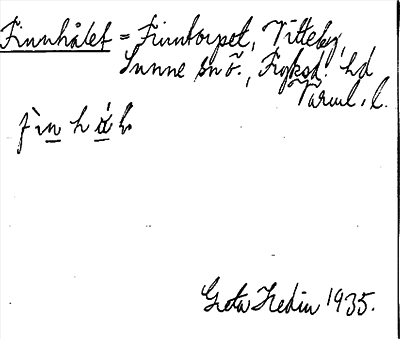 Finnhålet = Finntorpet, Vitteby,
Sunne sn ö., Fryksd. hd
Värml. l.
fìn h ǻ l.
Greta Hedin 1935.